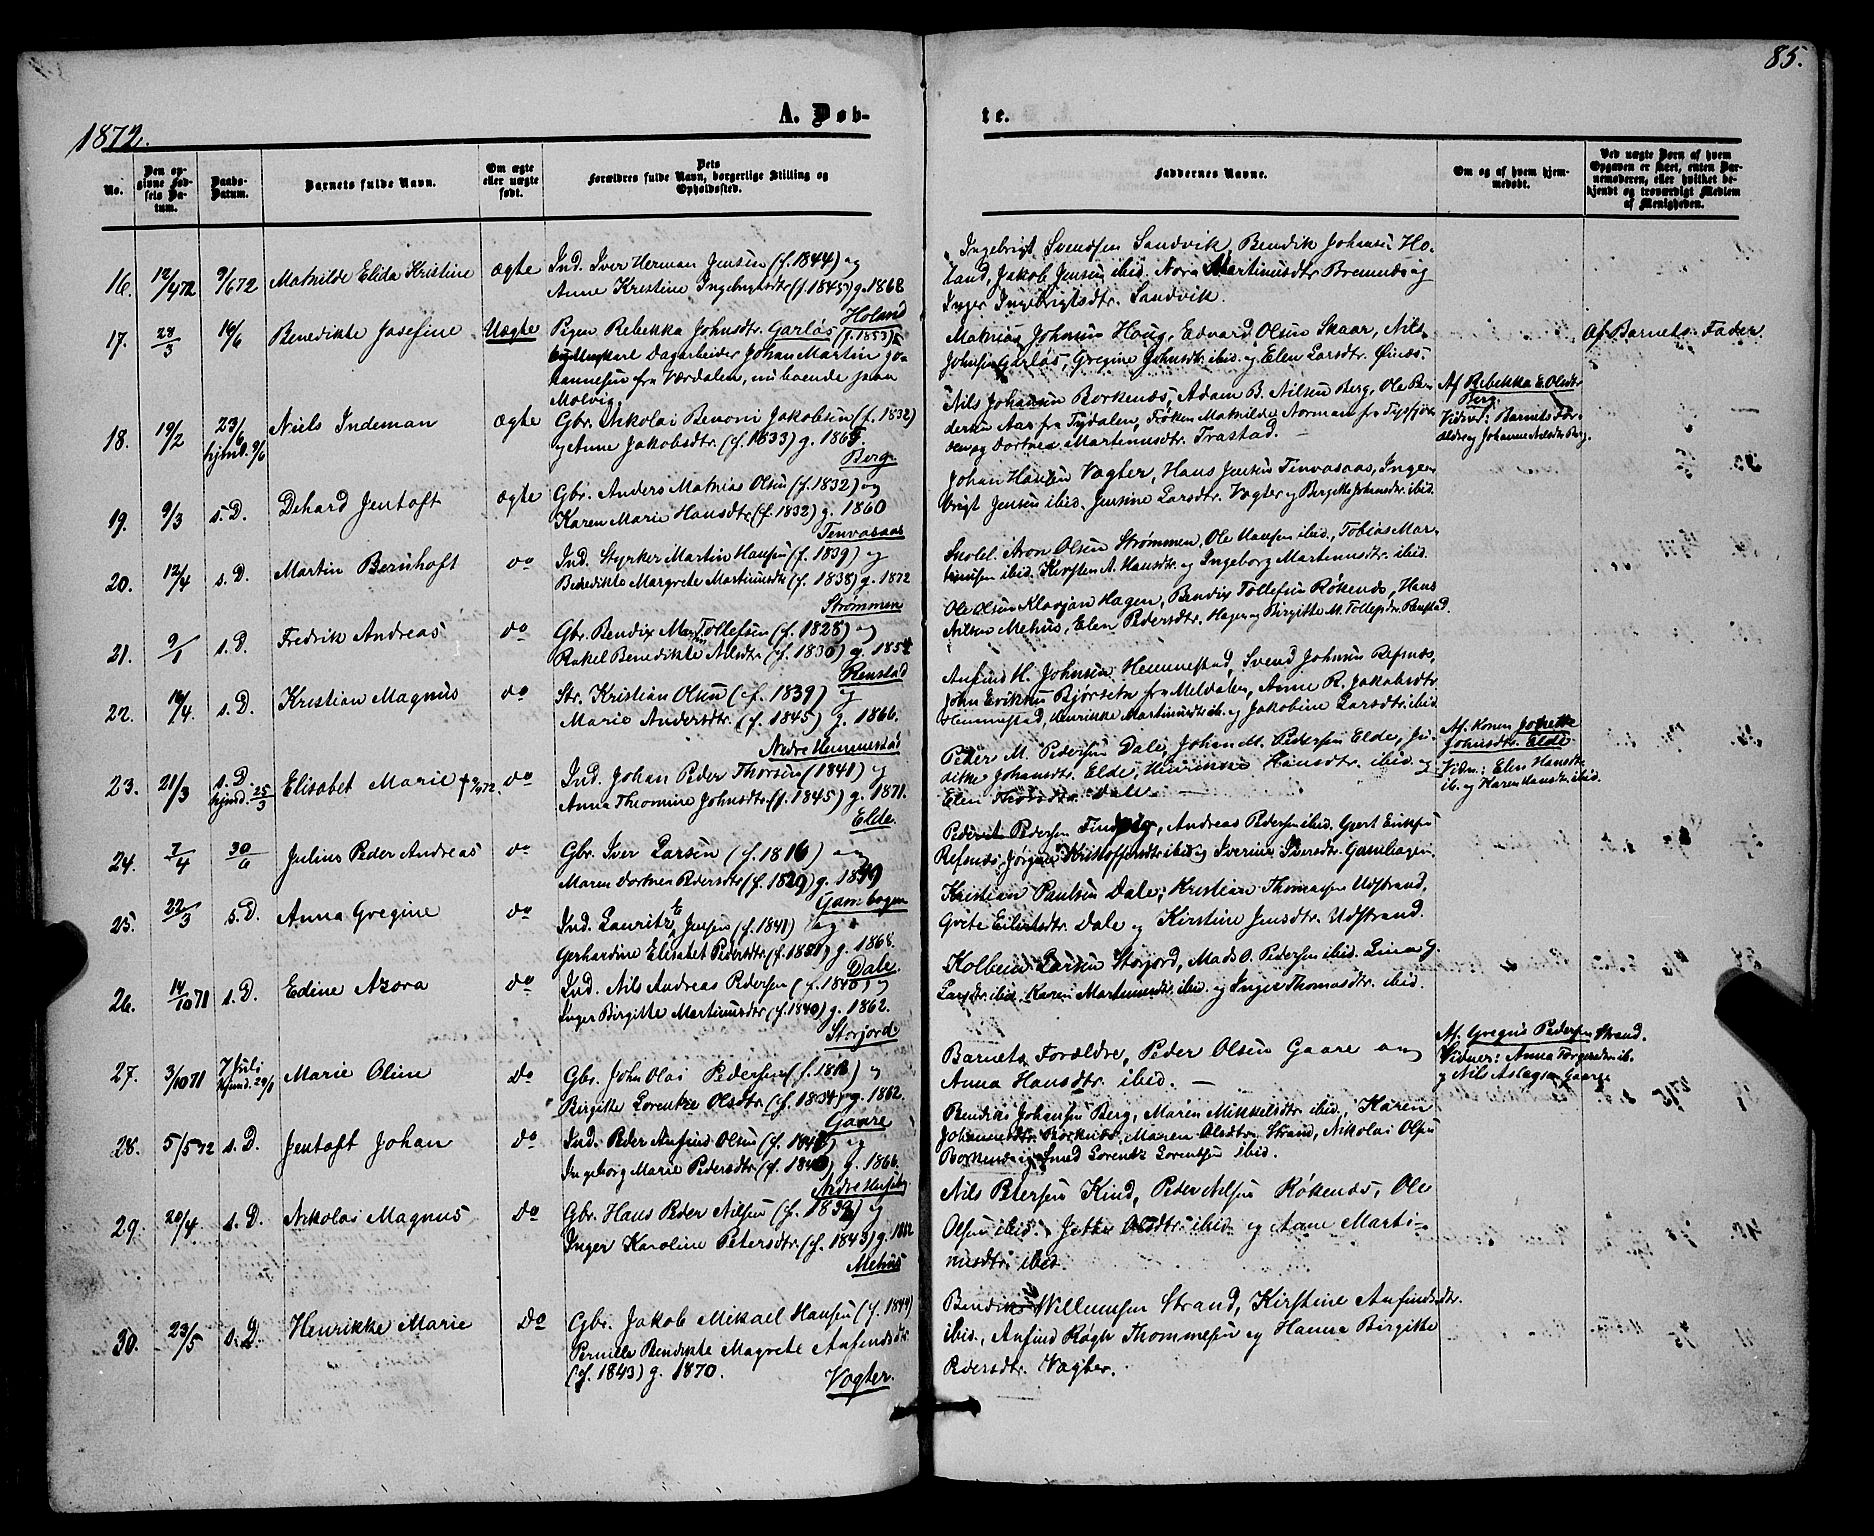 85.
A. Døb-
te.
1872.
No.
Den op-
givne Fød-
sels Da-
tum.
Daabs-
Datum.
Barnets fulde Navn.
Om ægte
eller uægte
født.
Dets
Forældres fulde Navn, borgerlige Stilling og
Opholdssted.
Faddernes Navne.
Om og af hvem hjem-
medøbt.
Ved uægte Børn af hvem
Opgaven er skeet, enten Bar-
nemoderen, eller hvilket be-
kjendt og troværdigt Medlem
af Menigheden.
16. 12/4 72 9/6 72 Mathilde Elida Kristine ægte
Ind. Iver Herman Jensen (f. 1844) og
Anne Kristine Ingebrigtsdtr (f. 1845) g. 1868
Holand
Ingebrigt Svendsen Sandvik, Bendik Johansen Ho-
land, Jakob Jensen ibid. Nora Martinusdtr. Bremnes og
Inger Ingebrigtsdtr. Sandvik.
17. 28/3 16/6 Benedikte Josefine Uægte
Pigen Rebekka Johnsdtr. Garløs (f. 1853) &
Ungkarl Dagarbeider Johan Martin Jo-
hannesen fra Værdalen, nu boende paa
Molvig.
Mathias Johnsen Haug, Edvard Olsen Skaar, Nils
Johnsen Garløs, Gregine Johnsdtr. ibid. og Elen Larsdtr. Øinæs.
Af Barnets Fader.
18. 19/2 23/6 hjmd. 9/6 Niels Indeman ægte
Gbr. Nikolai Benoni Jakobsen (f. 1832)
og Anne Jakobsdtr. (f. 1833) g. 1865
Berg.
Nils Johansen Borkenæs, Adam B. Nilsen Berg, Ole Ben
dersen Aas fra Tydalen, Frøken Mathilde Norman fra Tysfjor-
den og Dorthea Martinusdtr. Trastad. —
Af Rebekka E. Olsdtr
Berg.
Vidner: Barnets For-
ældre og Johanna Nilsdtr Berg.
19. 9/3 s. D. Dehard Jentoft ægte
Gbr. Anders Mathias Olsen (f. 1832) og
Karen Marie Hansdtr. (f. 1832) g. 1860
Tenvasaas
Johan Hansen Vagter, Hans Jensen Tenvasaas, Inge-
brigt Jensen ibid. Jensine Larsdtr. Vagter og Bergitte Johansdtr. ibid.
20. 12/4 s. D. Martin Bernhoft do
Ind. Styrker Martin Hansen (f. 1839) og
Benedikte Margrete Martinusdtr (f. 1838) g. 1872
Strømmen
Skolel. Aron Olsen Strømmen, Ole Hansen ibid., Tobias Mar-
tinusen ibid. Kirsten A. Hansdtr. og Ingeborg Martinusdtr. ibid.
21. 9/1 s. D. Fredrik Andreas do
Gbr. Bendix Mar. Tollefsen (f. 1828) og
Rakel Benedikte Nilsdtr. (f. 1830) g. 1854
Renstad
Ole Olsen Klaajan Hagen, Bendix Tollefsen Røkenæs, Hans
Nilsen Mehus, Elen Pedersdtr. Hagen og Birgitte M. Tollefsdtr. Renstad.
22. 16/4 s. D. Kristian Magnus do
Str. Kristian Olsen (f. 1839) og
Marie Andersdtr. (f. 1845) g. 1866.
Nedre Hemmestad
Anfind H. Johnsen Hemmestad, Svend Johnsen Refsnæs,
John Eriksen Bjørseth fra Meldalen, Anne R. Jakobsdtr
Hemmestad, Henrikke Martinusdtr ib. og Jakobine Larsdtr. ibid
23. 21/3 s. D. hjmd. 25/3 Elisabet Marie † 9/4 72. do
Ind. Johan Peder Thorsen (1841) og
Anna Theomine Johnsdtr. (f. 1845) g. 1871.
Elde.
Peder M. Pedersen Dale, Johan M. Pedersen Elde, Ju-
dithe Johansdtr. Elde, Henrikke Hansdtr. ibid. og
Elen Thorsdtr. Dale —
Af Konen Jonette
Johnsdtr. Elde
Vidn.: Elen Hansdtr.
ib. og Karen Hansdtr. ibid.
24. 7/4 30/6 Julius Peder Andreas do
Gbr. Iver Larsen (f. 1816) og
Maren Dorthea Pedersdtr (f. 1829) g. 1849
Gamhagen
Pedersen Findvig, Andreas Pedersen ibid. Gjert Eriksen
Refsnæs, Jørgine Kristoffersdtr. ibid og Iverine Iversdtr. Gamhagen.
25. 22/3 s. D. Anna Gregine do
Ind. Lauritz E Jensen (f. 1841) og
Gerhardine Elisabet Pedersdtr. (f. 1851) g. 1868.
Dale.
Kristian Paulsen Dale, Kristian Thomassen Udstrand,
Grete Eilertsdtr. Dale og Kirstine Jensdtr. Udstrand.
26. 14/10 71 s. D. Edine Azora do
Ind. Nils Andreas Pedersen (f. 1840) og
Inger Birgitte Martinusdtr (f. 1840) g. 1862.
Storjord
Kolbein Larsen Storjord, Mads O. Pedersen ibid. Lina G.
Larsdtr. ibid. Karen Martinusdtr. ibid. og Inger Thomasdtr. ibid.
27. 3/10 71 7 Juli hjmd. 29/1 Marie Oline do
Gbr. John Olai Pedersen (f. 1816) og
Birgitte Lorentze Olsdtr. (f. 1834) g. 1862.
Gaare
Barnets Forældre, Peder Olsen Gaare og
Anna Hansdtr. ibid. —
Af Gregus Pedersen Strand.
Vidner: Anna ib.
og Nils Aslagsen Gaare
28. 5/5 72 s. D. Jentoft Johan do
Ind. Peder Anfind Olsen (f. 1840) og
Ingeborg Marie Pedersdtr. (f. 1840) g. 1866.
Nedre Husby
Bendik Johansen Berg, Maren Mikkelsdtr. ibid., Karen
Johannesdtr. Borknes, Maren Olsdtr. Strand, Nikolai Olsen
Borkenes og Smed Lorentz Lorentsen ibid.
29. 20/4 s. D. Nikolai Magnus do
Gbr. Hans Peder Nilsen (f. 1832) og
Inger Karoline Petersdtr. (f. 1843) g. 1862
Mehus
Nils Petersen Kind, Peder Nilsen Røkenæs, Ole
Olsen ibid. Jette Olsdtr. ibid. og Anne Marti-
nusdtr. ibid.
30. 23/5 s. D. Henrikke Marie do
Gbr. Jakob Mikael Hansen (f. 1844)
Pernille Bendikte Magrete Anfindsdtr.
(f. 1843) g. 1870.
Vagter.
Bendix Willumsen Strand, Kirstine Anfindsdtr.
ibid., Anfind Røgh Thommesen og Hanna Birgitte
Pedersdtr. Vagter.